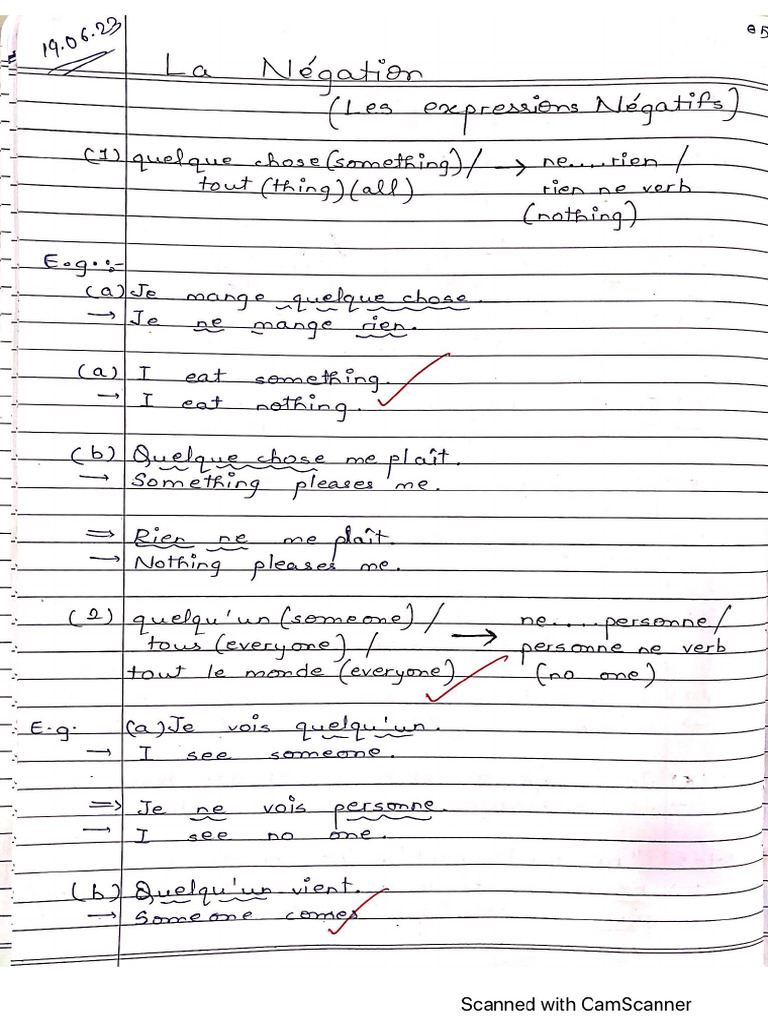 19.06.23
La Négation
(Les expressions Négatifs)
(1) quelque chose (something) / → ne....rien /
tout (thing) (all) rien ne verb
(nothing)
E.g.:-
(a) Je mange quelque chose.
→ Je ne mange rien.
(a) I eat something.
→ I eat nothing.
(b) Quelque chose me plaît.
→ Something pleases me.
⇒ Rien ne me plaît.
→ Nothing pleases me.
(2) quelqu'un (someone) / ne.....personne /
tous (everyone) / → personne ne verb
tout le monde (everyone) (no one)
E.g. (a) Je vois quelqu'un.
→ I see someone.
⇒ Je ne vois personne.
→ I see no one.
(b) Quelqu'un vient.
→ Someone comes
Scanned with CamScanner